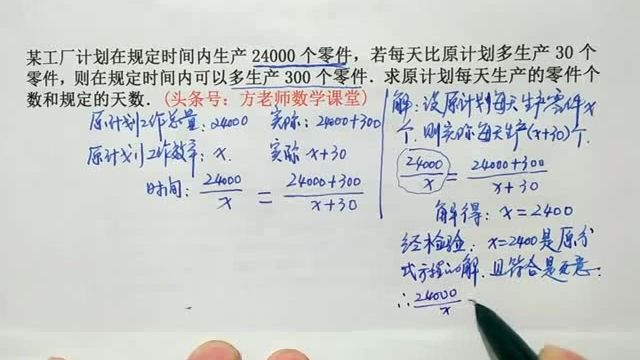 某工厂计划在规定时间内生产 24000 个零件，若每天比原计划多生产 30 个
零件，则在规定时间内可以多生产 300 个零件．求原计划每天生产的零件个
数和规定的天数．(头条号：方老师数学课堂)
原计划工作总量：24000 实际：24000+300
原计划工作效率：x. 实际 x+30
时间：24000/x = (24000+300)/(x+30)
解：设原计划每天生产零件x
个．则实际每天生产(x+30)个．
24000/x = (24000+300)/(x+30)
解得：x=2400
经检验：x=2400是原分
式方程的解．且符合是意．
∴ 24000/x